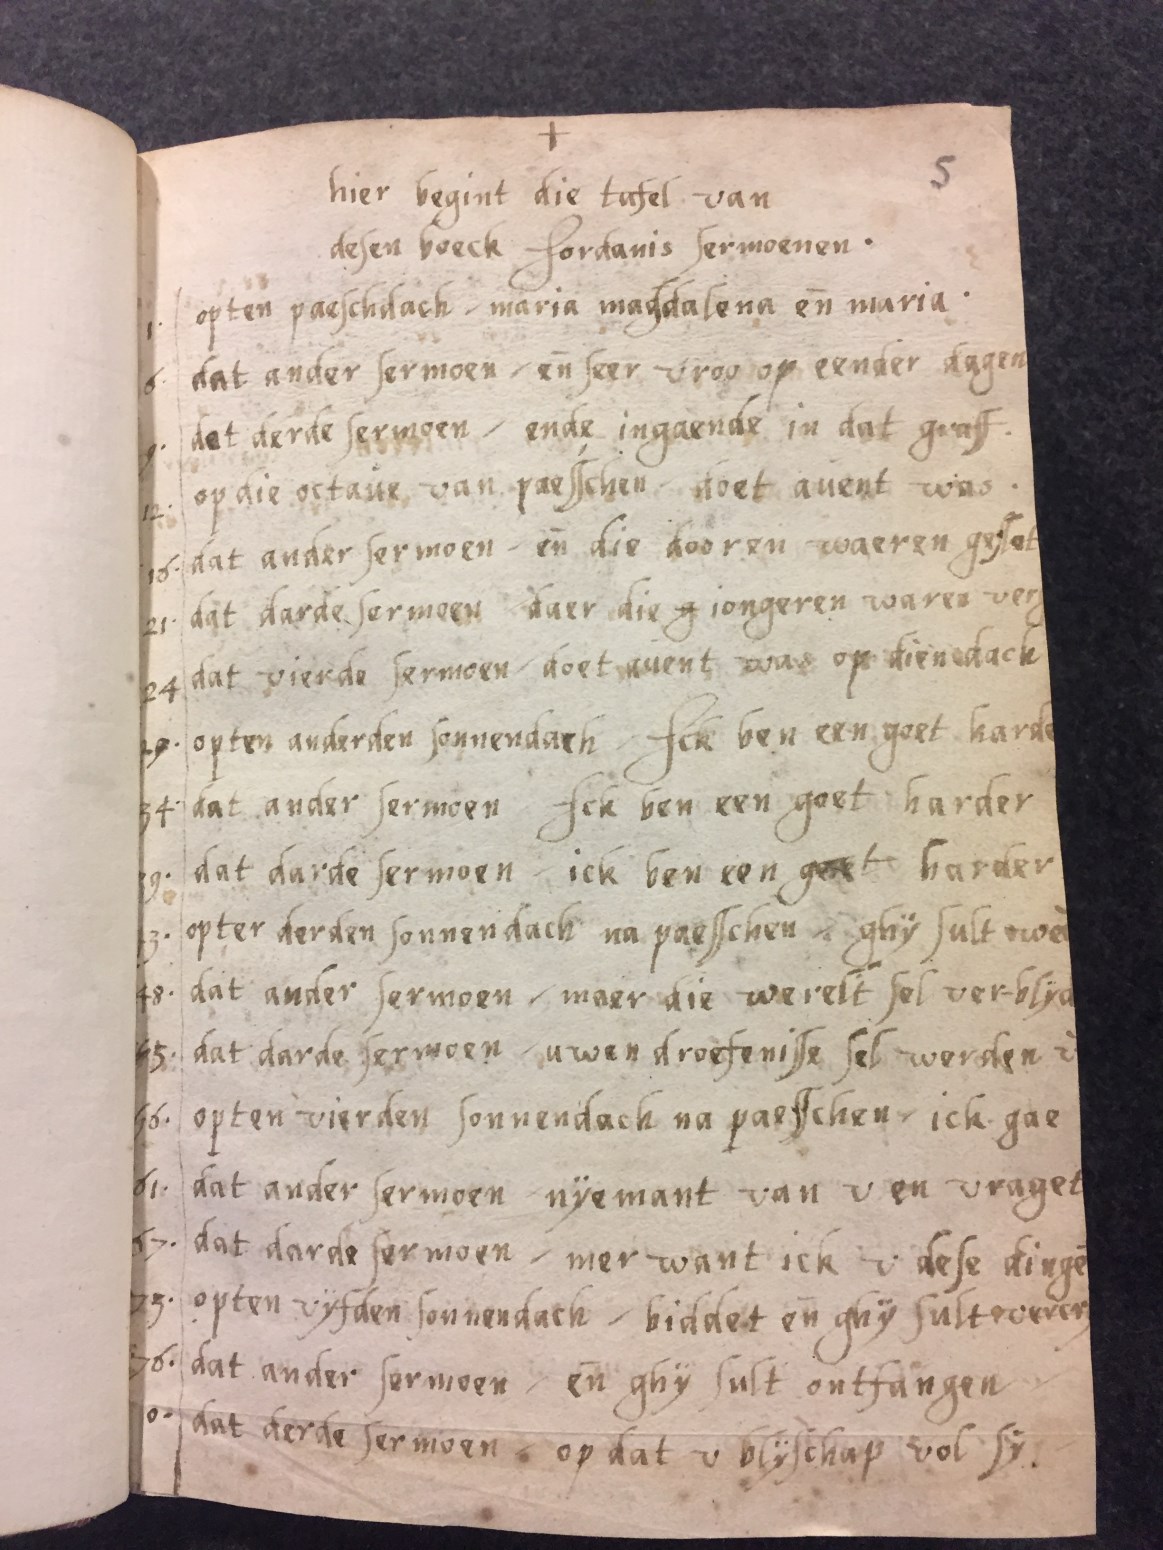 +
5
hier begint die tafel van
desen boeck Jordanis sermoenen.
1. opten paeschdach / maria magdalena en̄ maria.
6. dat ander sermoen / en̄ seer vroo op eender dagen
9. dat derde sermoen / ende ingaende in dat graff.
12. op die octaue van paesschen doet auent was.
16. dat ander sermoen / en̄ die dooren waeren geslot
21. dat darde sermoen daer die iongeren waren ver
24 dat vierde sermoen / doet auent was op dien dach
29. opten anderden sonnendach / Ick ben een goet harde
34. dat ander sermoen Ick ben een goet harder
39. dat darde sermoen / ick ben een goet harder
3. opter derden sonnendach na paesschen / ghÿ sult
48. dat ander sermoen / maer die werelt sel ver-blÿd
dat darde sermoen / uwen droefenisse sel werden
56. opten vierden sonnendach na paesschen / ick gae
61. dat ander sermoen nÿemant van v en vraget
67. dat darde sermoen / mer want ick v dese dingē
opten vÿfden sonnendach / biddet en̄ ghÿ sult vercr
76. dat ander sermoen / en̄ ghÿ sult ontfangen
0. dat derde sermoen / op dat v blÿschap vol sÿ.